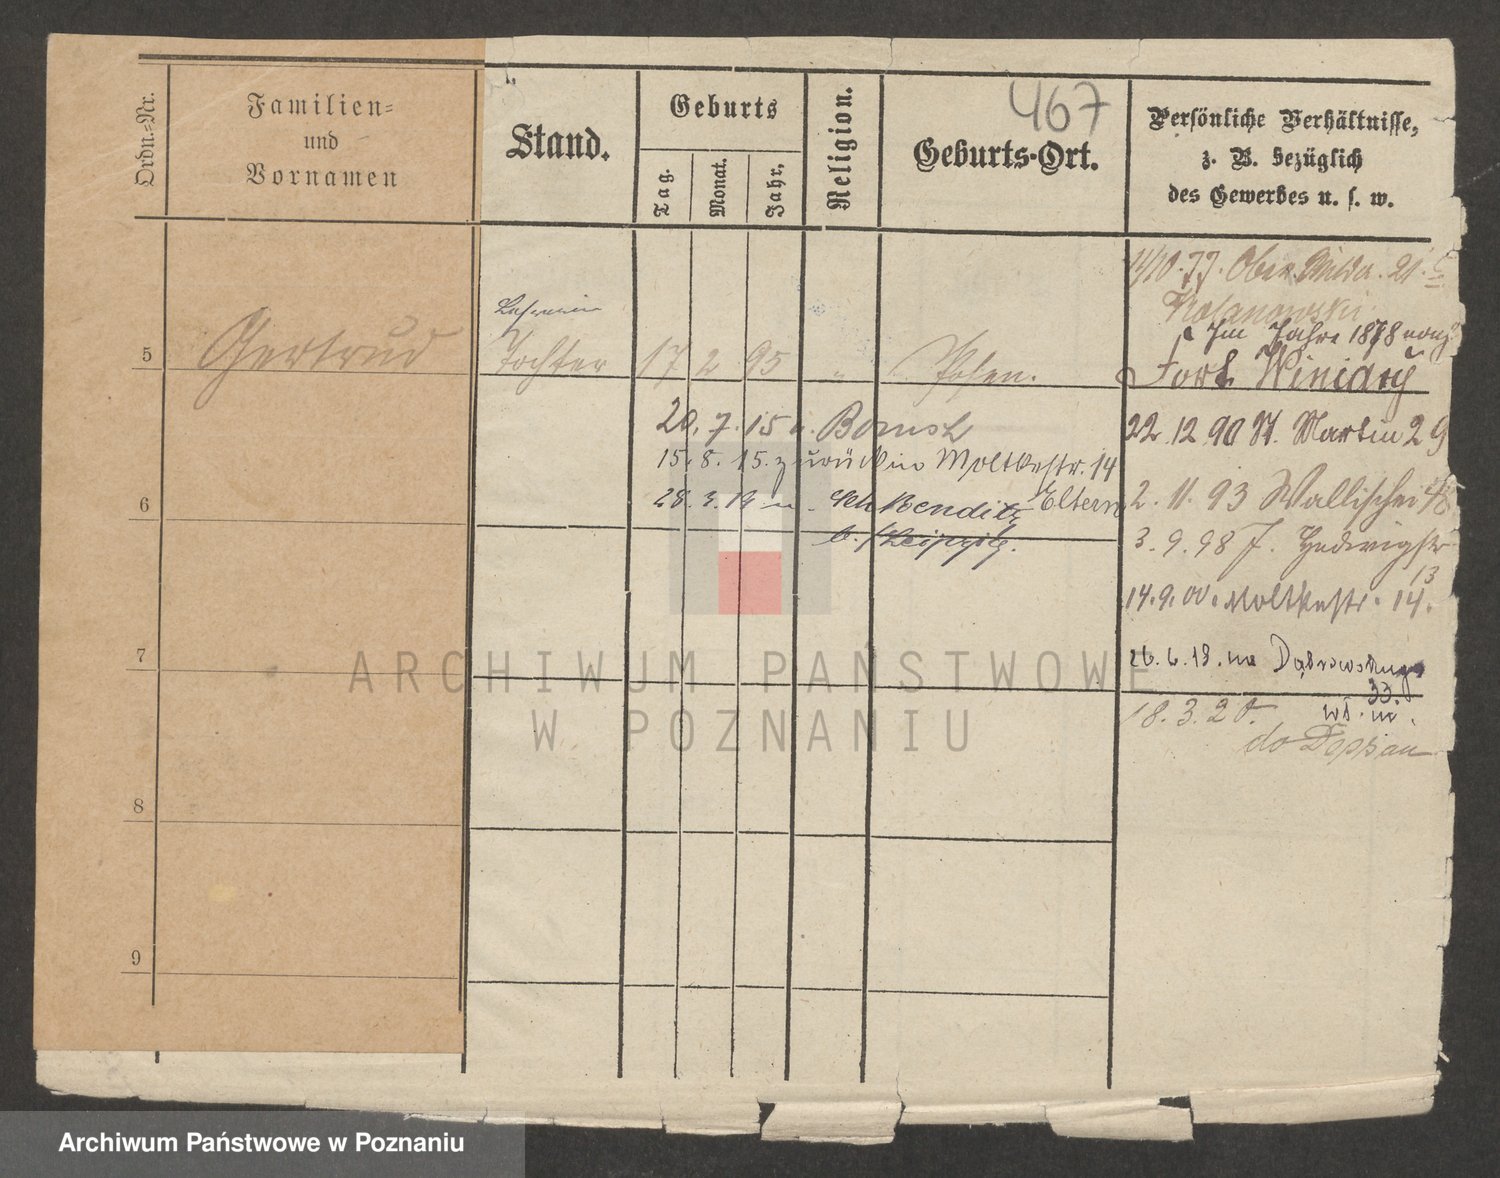 467
Ordn.=Nr.
Familien=
und
Vornamen
Stand.
Geburts
Tag.
Monat.
Jahr,
Religion.
Geburts-Ort.
Persönliche Verhältnisse,
z. B. bezüglich
des Gewerbes u. s. w.
14/10.77. Ober Wilda. 21.
Im Jahre 1878 nach
Fort Winiary
5 Gertrud
Lehrerin
Tochter 17 2 95 " Posen.
20. 7. 15 n. Bomst
15. 8. 15. zurück in Moltkestr. 14
Eltern
6
28. 3. 19. n.
b. Leipzig.
22. 12 90 St. Martin 29
2. 11. 93 Wallischei 48
3. 9. 98 J. Hedwigstr
13
14. 9. 00. Moltkestr. 14.
7
26. 6. 19. na Dąbrowskiego
33.
18. 3. 20.
do
8
9
ARCHIWUM PAŃSTWOWE
W POZNANIU
Archiwum Państwowe w Poznaniu